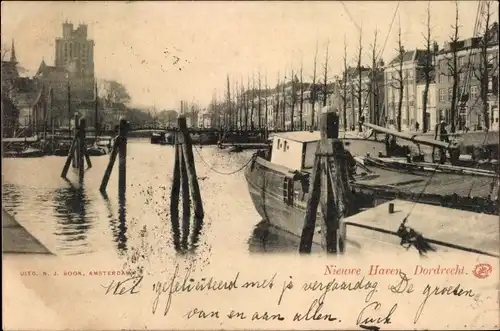 UITG. N. J. BOON, AMSTERDAM
Nieuwe Haven, Dordrecht.
Wel gefeliciteerd met je verjaardag De groeten
van en aan allen.